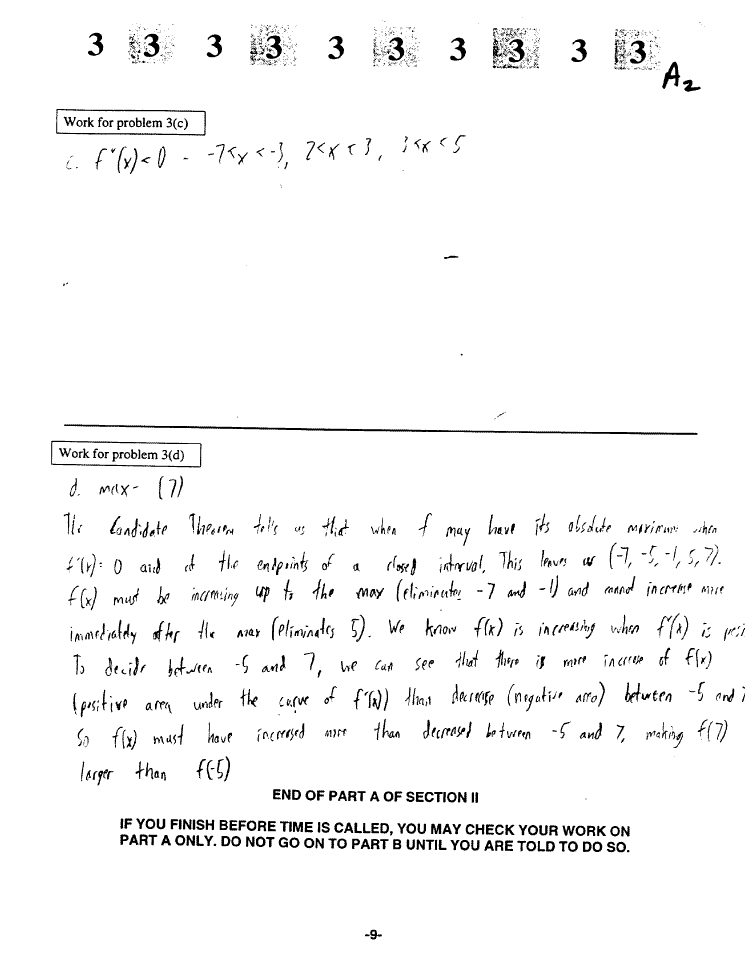 3 3 3 3 3 3 3 3 3 3
A2
Work for problem 3(c)
c. f"(x)<0 - -7<x<-3, 2<x<3, 3<x<5
Work for problem 3(d)
d. max- (7)
The Candidate Theorem tells us that when f may have its absolute maximum when
f'(x)=0 and at the endpoints of a closed interval. This leaves us (-7, -5, -1, 5, 7).
f(x) must be increasing up to the max (eliminates -7 and -1) and cannot increase more
immediately after the max (eliminates 5). We know f(x) is increasing when f'(x) is posi
To decide between -5 and 7, we can see that there is more increase of f(x)
(positive area under the curve of f'(x)) than decrease (negative area) between -5 and 7
So f(x) must have increased more than decreased between -5 and 7, making f(7)
larger than f(-5)
END OF PART A OF SECTION II
IF YOU FINISH BEFORE TIME IS CALLED, YOU MAY CHECK YOUR WORK ON
PART A ONLY. DO NOT GO ON TO PART B UNTIL YOU ARE TOLD TO DO SO.
-9-